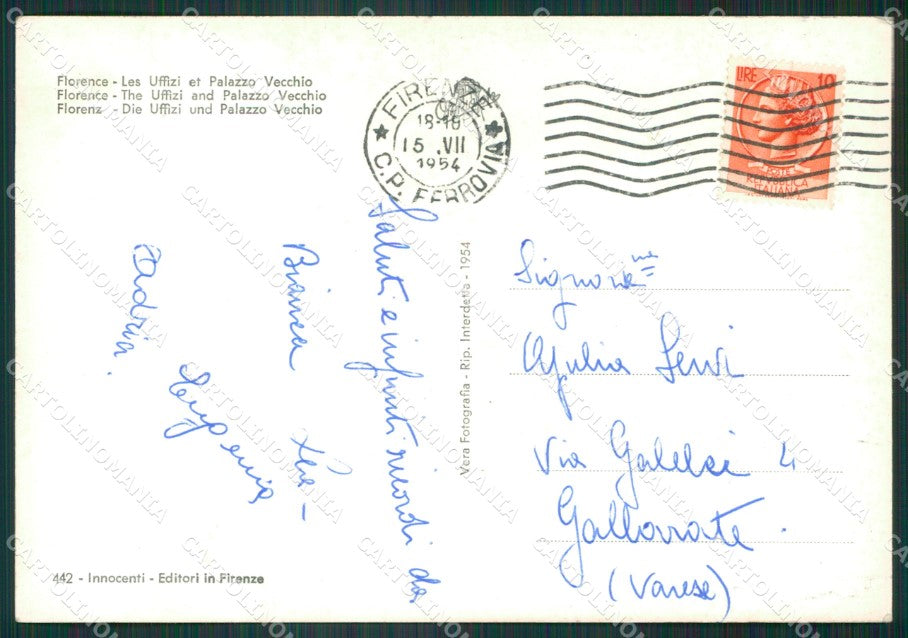 Florence - Les Uffizi et Palazzo Vecchio
Florence - The Uffizi and Palazzo Vecchio
Florenz - Die Uffizi und Palazzo Vecchio
FIRENZE
15 .VII
1954
C.P. FERROVIA
LIRE 10
POSTE
REPVBBLICA
ITALIANA
Saluti e infiniti ricordi da
Bianca
Eugenia
Vera Fotografia - Rip. Interdetta - 1954
Giulia Servi
Via Galilei 4
Gallarate
(Varese)
442 - Innocenti - Editori in Firenze
CARTOLINOMANIA